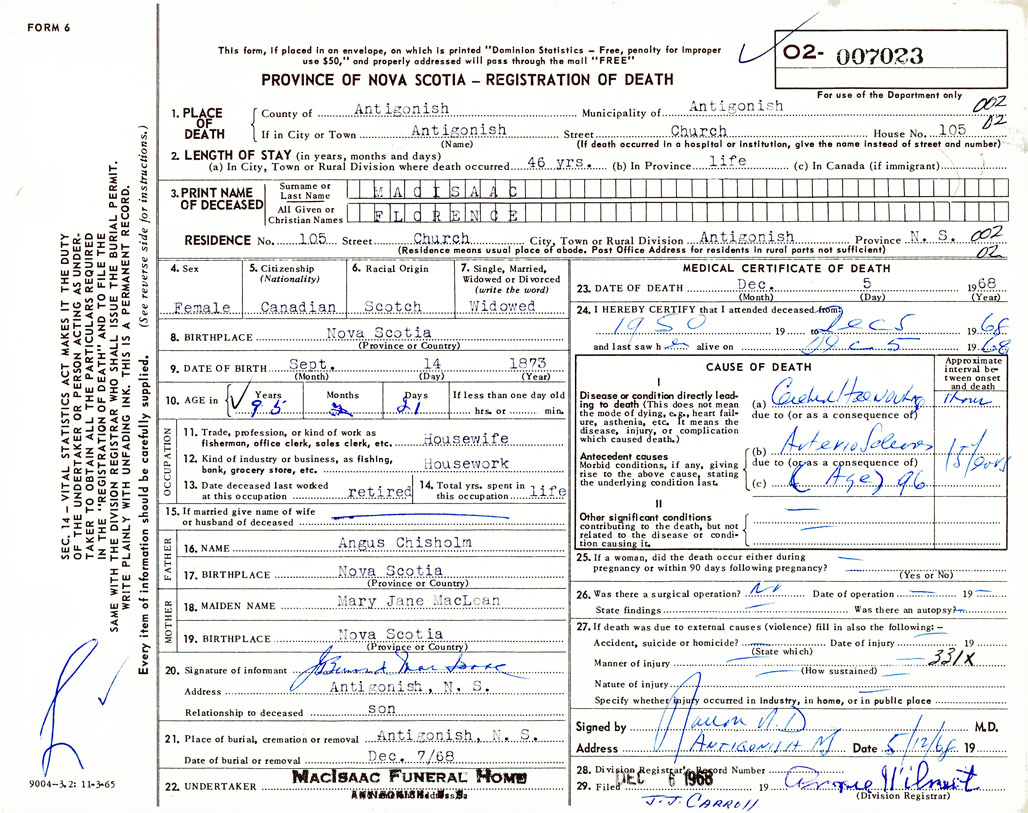 FORM 6
This form, if placed in an envelope, on which is printed "Dominion Statistics – Free, penalty for improper
use $50," and properly addressed will pass through the mail "FREE"
PROVINCE OF NOVA SCOTIA – REGISTRATION OF DEATH
02- 007023
For use of the Department only
1. PLACE OF DEATH
County of Antigonish Municipality of Antigonish 002
If in City or Town Antigonish Street Church House No. 105 02
(Name) (If death occurred in a hospital or institution, give the name instead of street and number)
2. LENGTH OF STAY (in years, months and days)
(a) In City, Town or Rural Division where death occurred 46 yrs. (b) In Province life (c) In Canada (if immigrant)
3. PRINT NAME OF DECEASED
Surname or Last Name MACISAAC
All Given or Christian Names FLORENCE
RESIDENCE No. 105 Street Church City, Town or Rural Division Antigonish Province N. S. 002
(Residence means usual place of abode. Post Office Address for residents in rural parts not sufficient) 02
4. Sex
Female
5. Citizenship
(Nationality)
Canadian
6. Racial Origin
Scotch
7. Single, Married,
Widowed or Divorced
(write the word)
Widowed
8. BIRTHPLACE Nova Scotia
(Province or Country)
9. DATE OF BIRTH Sept. 14 1873
(Month) (Day) (Year)
10. AGE in Years Months Days If less than one day old
95 2 21 hrs. or min.
OCCUPATION
11. Trade, profession, or kind of work as
fisherman, office clerk, sales clerk, etc. Housewife
12. Kind of industry or business, as fishing,
bank, grocery store, etc. Housework
13. Date deceased last worked
at this occupation retired
14. Total yrs. spent in
this occupation life
15. If married give name of wife
or husband of deceased
FATHER
16. NAME Angus Chisholm
17. BIRTHPLACE Nova Scotia
(Province or Country)
MOTHER
18. MAIDEN NAME Mary Jane MacLean
19. BIRTHPLACE Nova Scotia
(Province or Country)
20. Signature of informant Bernard MacIsaac
Address Antigonish, N. S.
Relationship to deceased son
21. Place of burial, cremation or removal Antigonish, N. S.
Date of burial or removal Dec. 7/68
22. UNDERTAKER MACISAAC FUNERAL HOME
MEDICAL CERTIFICATE OF DEATH
23. DATE OF DEATH Dec. 5 1968
(Month) (Day) (Year)
24. I HEREBY CERTIFY that I attended deceased from:
1950 19 to Dec 5 1968
and last saw h alive on Dec 5 1968
CAUSE OF DEATH
Approximate
interval be-
tween onset
and death
I
Disease or condition directly lead-
ing to death (This does not mean
the mode of dying, e.g., heart fail-
ure, asthenia, etc. It means the
disease, injury, or complication
which caused death.)
(a) Cerebral 1 hour
due to (or as a consequence of)
Antecedent causes
Morbid conditions, if any, giving
rise to the above cause, stating
the underlying condition last.
(b) Arterio Sclerosis 15 years
due to (or as a consequence of)
(c) (Age) 96
II
Other significant conditions
contributing to the death, but not
related to the disease or condi-
tion causing it.
25. If a woman, did the death occur either during
pregnancy or within 90 days following pregnancy?
(Yes or No)
26. Was there a surgical operation? No Date of operation 19
State findings Was there an autopsy?
27. If death was due to external causes (violence) fill in also the following: –
Accident, suicide or homicide? Date of injury 19
(State which)
Manner of injury 331X
(How sustained)
Nature of injury
Specify whether injury occurred in industry, in home, or in public place
Signed by M D M.D.
Address ANTIGONISH NS Date 5/12/68 19
28. Division Registrar's Record Number
29. Filed DEC 6 1968 19
(Division Registrar)
J.J. CARROLL
SEC. 14 – VITAL STATISTICS ACT MAKES IT THE DUTY
OF THE UNDERTAKER OR PERSON ACTING AS UNDER-
TAKER TO OBTAIN ALL THE PARTICULARS REQUIRED
IN THE "REGISTRATION OF DEATH" AND TO FILE THE
SAME WITH THE DIVISION REGISTRAR WHO SHALL ISSUE THE BURIAL PERMIT.
WRITE PLAINLY WITH UNFADING INK. THIS IS A PERMANENT RECORD.
Every item of information should be carefully supplied. (See reverse side for instructions.)
9004–3.2: 11-3-65